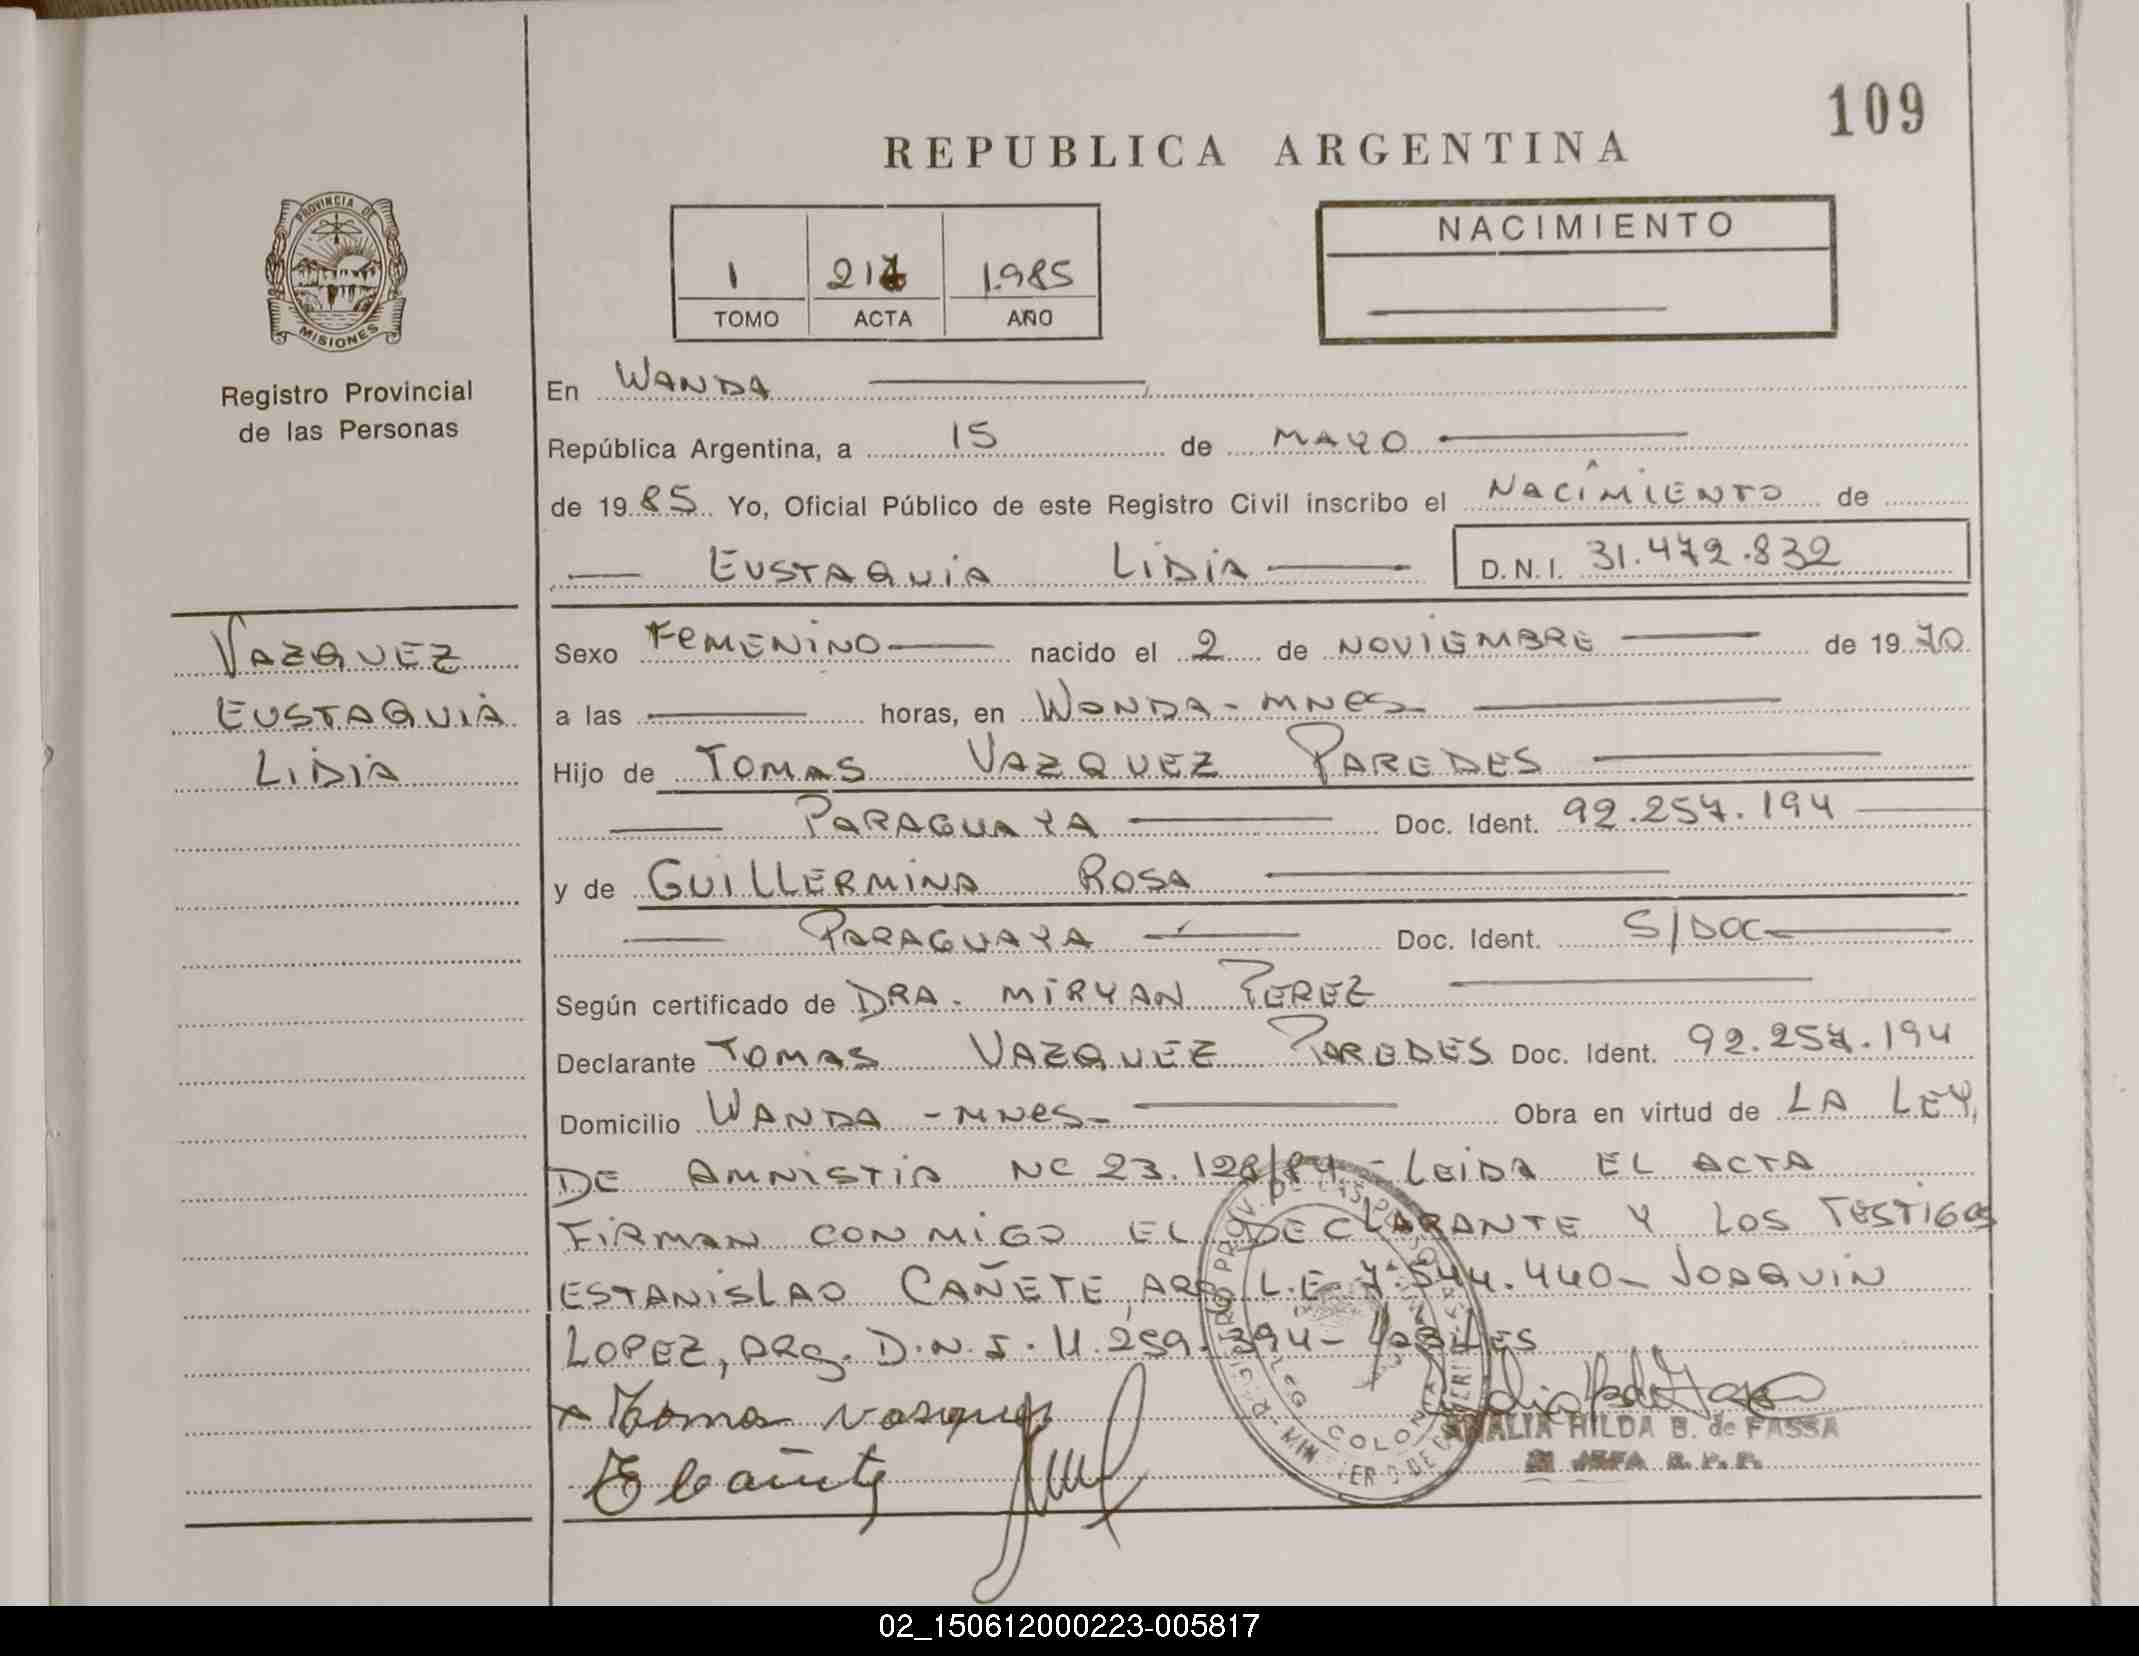 109
REPUBLICA ARGENTINA
PROVINCIA DE
MISIONES
Registro Provincial
de las Personas
1 1.985
TOMO ACTA AÑO
NACIMIENTO
En WANDA
República Argentina, a 15 de MAYO
de 1985 Yo, Oficial Público de este Registro Civil inscribo el NACIMIENTO de
EUSTAQUIA LIDIA D.N.I. 31.472.832
VAZQUEZ
EUSTAQUIA
LIDIA
Sexo FEMENINO nacido el 2 de NOVIEMBRE de 1970
a las horas, en WANDA - MNES
Hijo de TOMAS VAZQUEZ PAREDES
PARAGUAYA Doc. Ident. 92.257.194
y de GUILLERMINA ROSA
PARAGUAYA Doc. Ident. S/DOC
Según certificado de DRA. MIRYAN PEREZ
Declarante TOMAS VAZQUEZ PAREDES Doc. Ident. 92.257.194
Domicilio WANDA - MNES - Obra en virtud de LA LEY,
DE AMNISTIA NC 23.128/84 - LEIDA EL ACTA
FIRMAN CONMIGO EL DECLARANTE Y LOS TESTIGOS
ESTANISLAO CAÑETE, ARG L.E 7.544.440 - JOAQUIN
LOPEZ, ARG. D.N.I. 11.259.394 - HABILES
Tomas vasques
E Cañete
ANALIA HILDA B. de FASSA
JEFA R.P.P.
02_150612000223-005817